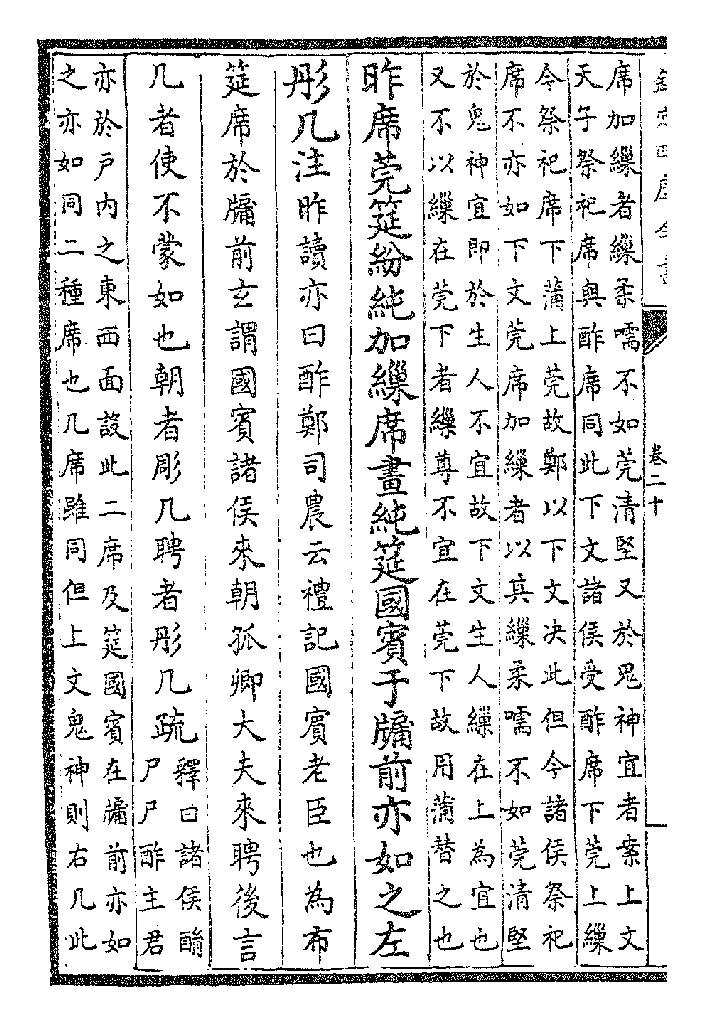 欽定四庫全書 卷二十
席加繅者繅柔嚅不如莞清堅又於鬼神宜者案上文
天子祭祀席與酢席同此下文諸侯受酢席下莞上繅
今祭祀席下蒲上莞故鄭以下文决此但今諸侯祭祀
席不亦如下文莞席加繅者以其繅柔嚅不如莞清堅
於鬼神宜即於生人不宜故下文生人繅在上為宜也
又不以繅在莞下者繅尊不宜在莞下故用蒲替之也
昨席莞筵紛純加繅席畫純筵國賓于牖前亦如之左
彤几注昨讀亦曰酢鄭司農云禮記國賓老臣也為布
筵席於牖前玄謂國賓諸侯來朝孤卿大夫來聘後言
几者使不蒙如也朝者彫几聘者彤几疏釋曰諸侯酳
尸尸酢主君
亦於戶内之東西面設此二席及筵國賓在牖前亦如
之亦如同二種席也几席雖同但上文鬼神則右几此